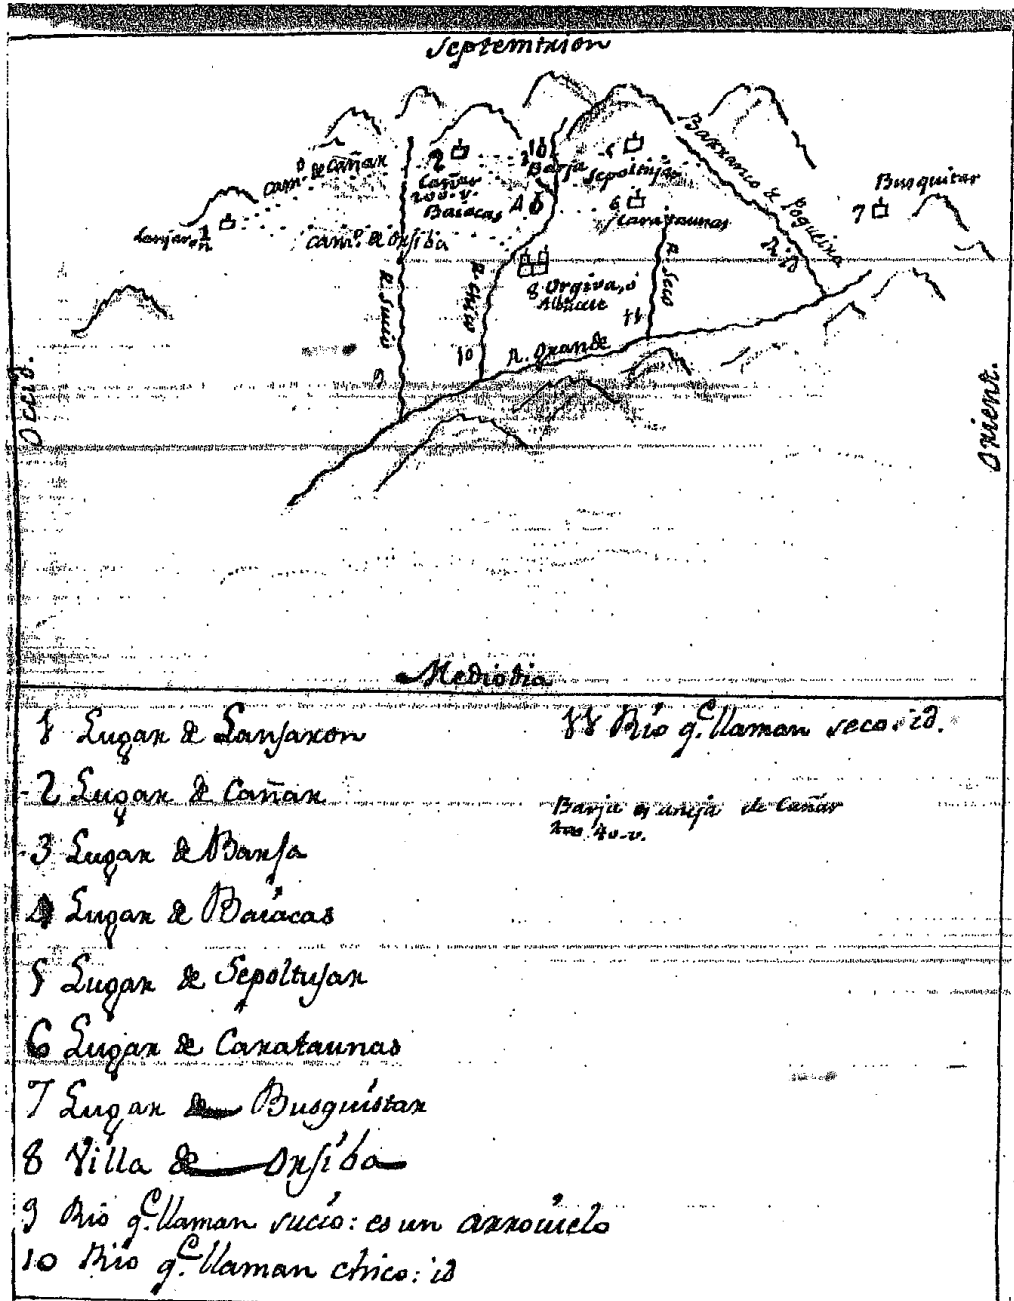 Septemtrion
Cam.º de Cañar
2
Cañar
200.v.
3
Barja
5
Sepoltujar
Barranco de Poqueira
Rio
Busquitar
7
Lanjaron
1
Baiacas
4
6
Carataunas
Cam.º de Orsiba
R. Sucio
R. Chico
8 Orgiva, ó
Albacete
R. Seco
11
10
9
R. Grande
Occid.
Orient.
Mediodia
1 Lugar de Lanjaron
2 Lugar de Cañar
3 Lugar de Barja
4 Lugar de Baiacas
5 Lugar de Sepoltujar
6 Lugar de Carataunas
7 Lugar de Busquistar
8 Villa de Orsiba
9 Rio q.e llaman sucio: es un arroiuelo
10 Rio q.e llaman chico: id
11 Rio q.e llaman seco: id.
Barja es aneja de Cañar
40.v.